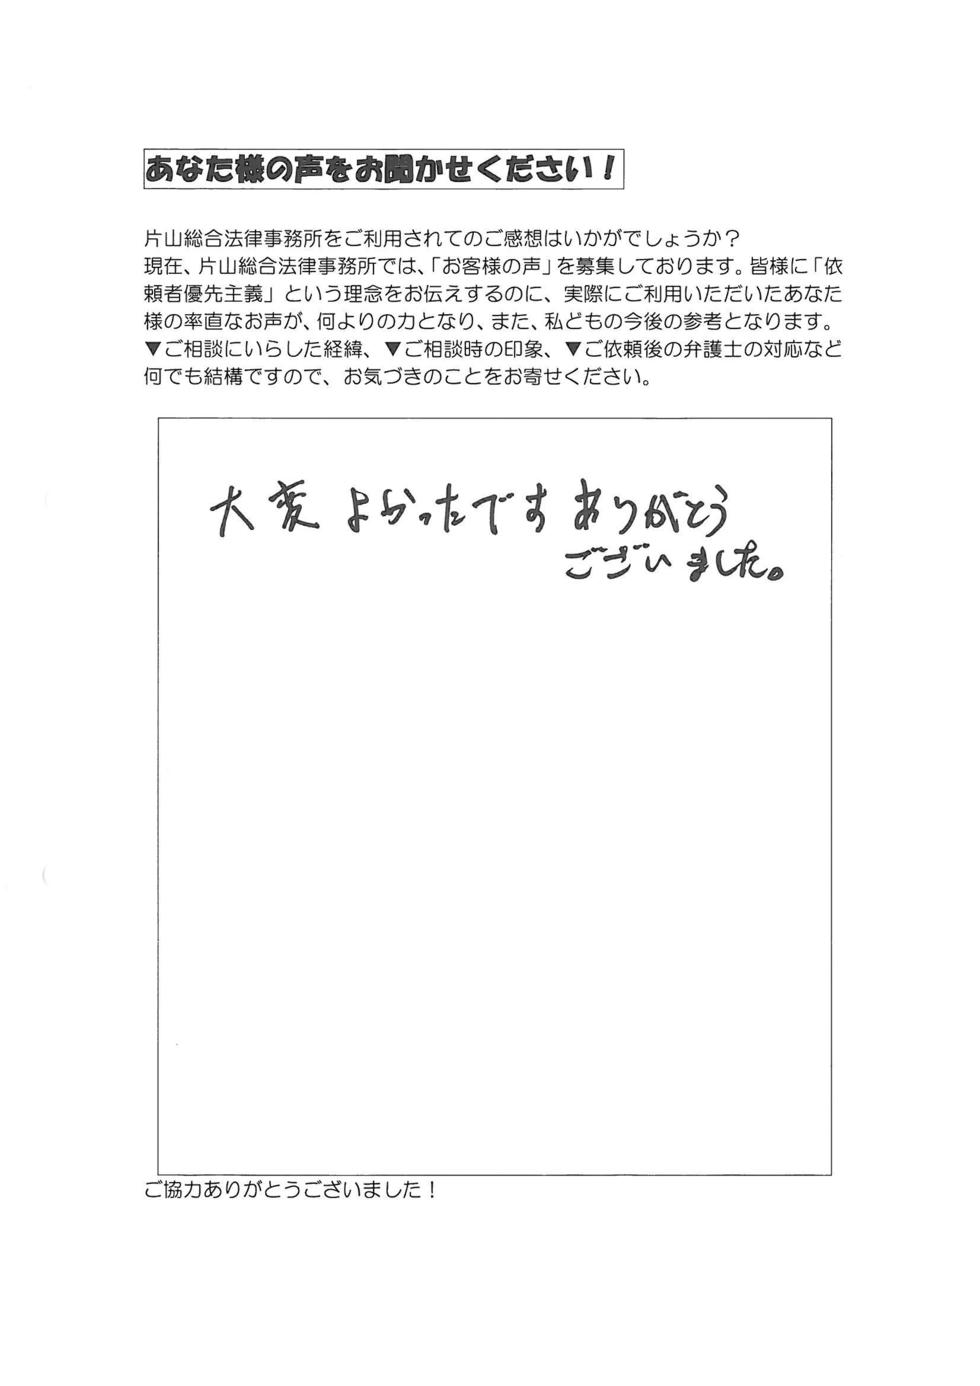 あなた様の声をお聞かせください！
片山総合法律事務所をご利用されてのご感想はいかがでしょうか？
現在、片山総合法律事務所では、「お客様の声」を募集しております。皆様に「依
頼者優先主義」という理念をお伝えするのに、実際にご利用いただいたあなた
様の率直なお声が、何よりの力となり、また、私どもの今後の参考となります。
▼ご相談にいらした経緯、▼ご相談時の印象、▼ご依頼後の弁護士の対応など
何でも結構ですので、お気づきのことをお寄せください。
大変よかったです ありがとう
ございました。
ご協力ありがとうございました！